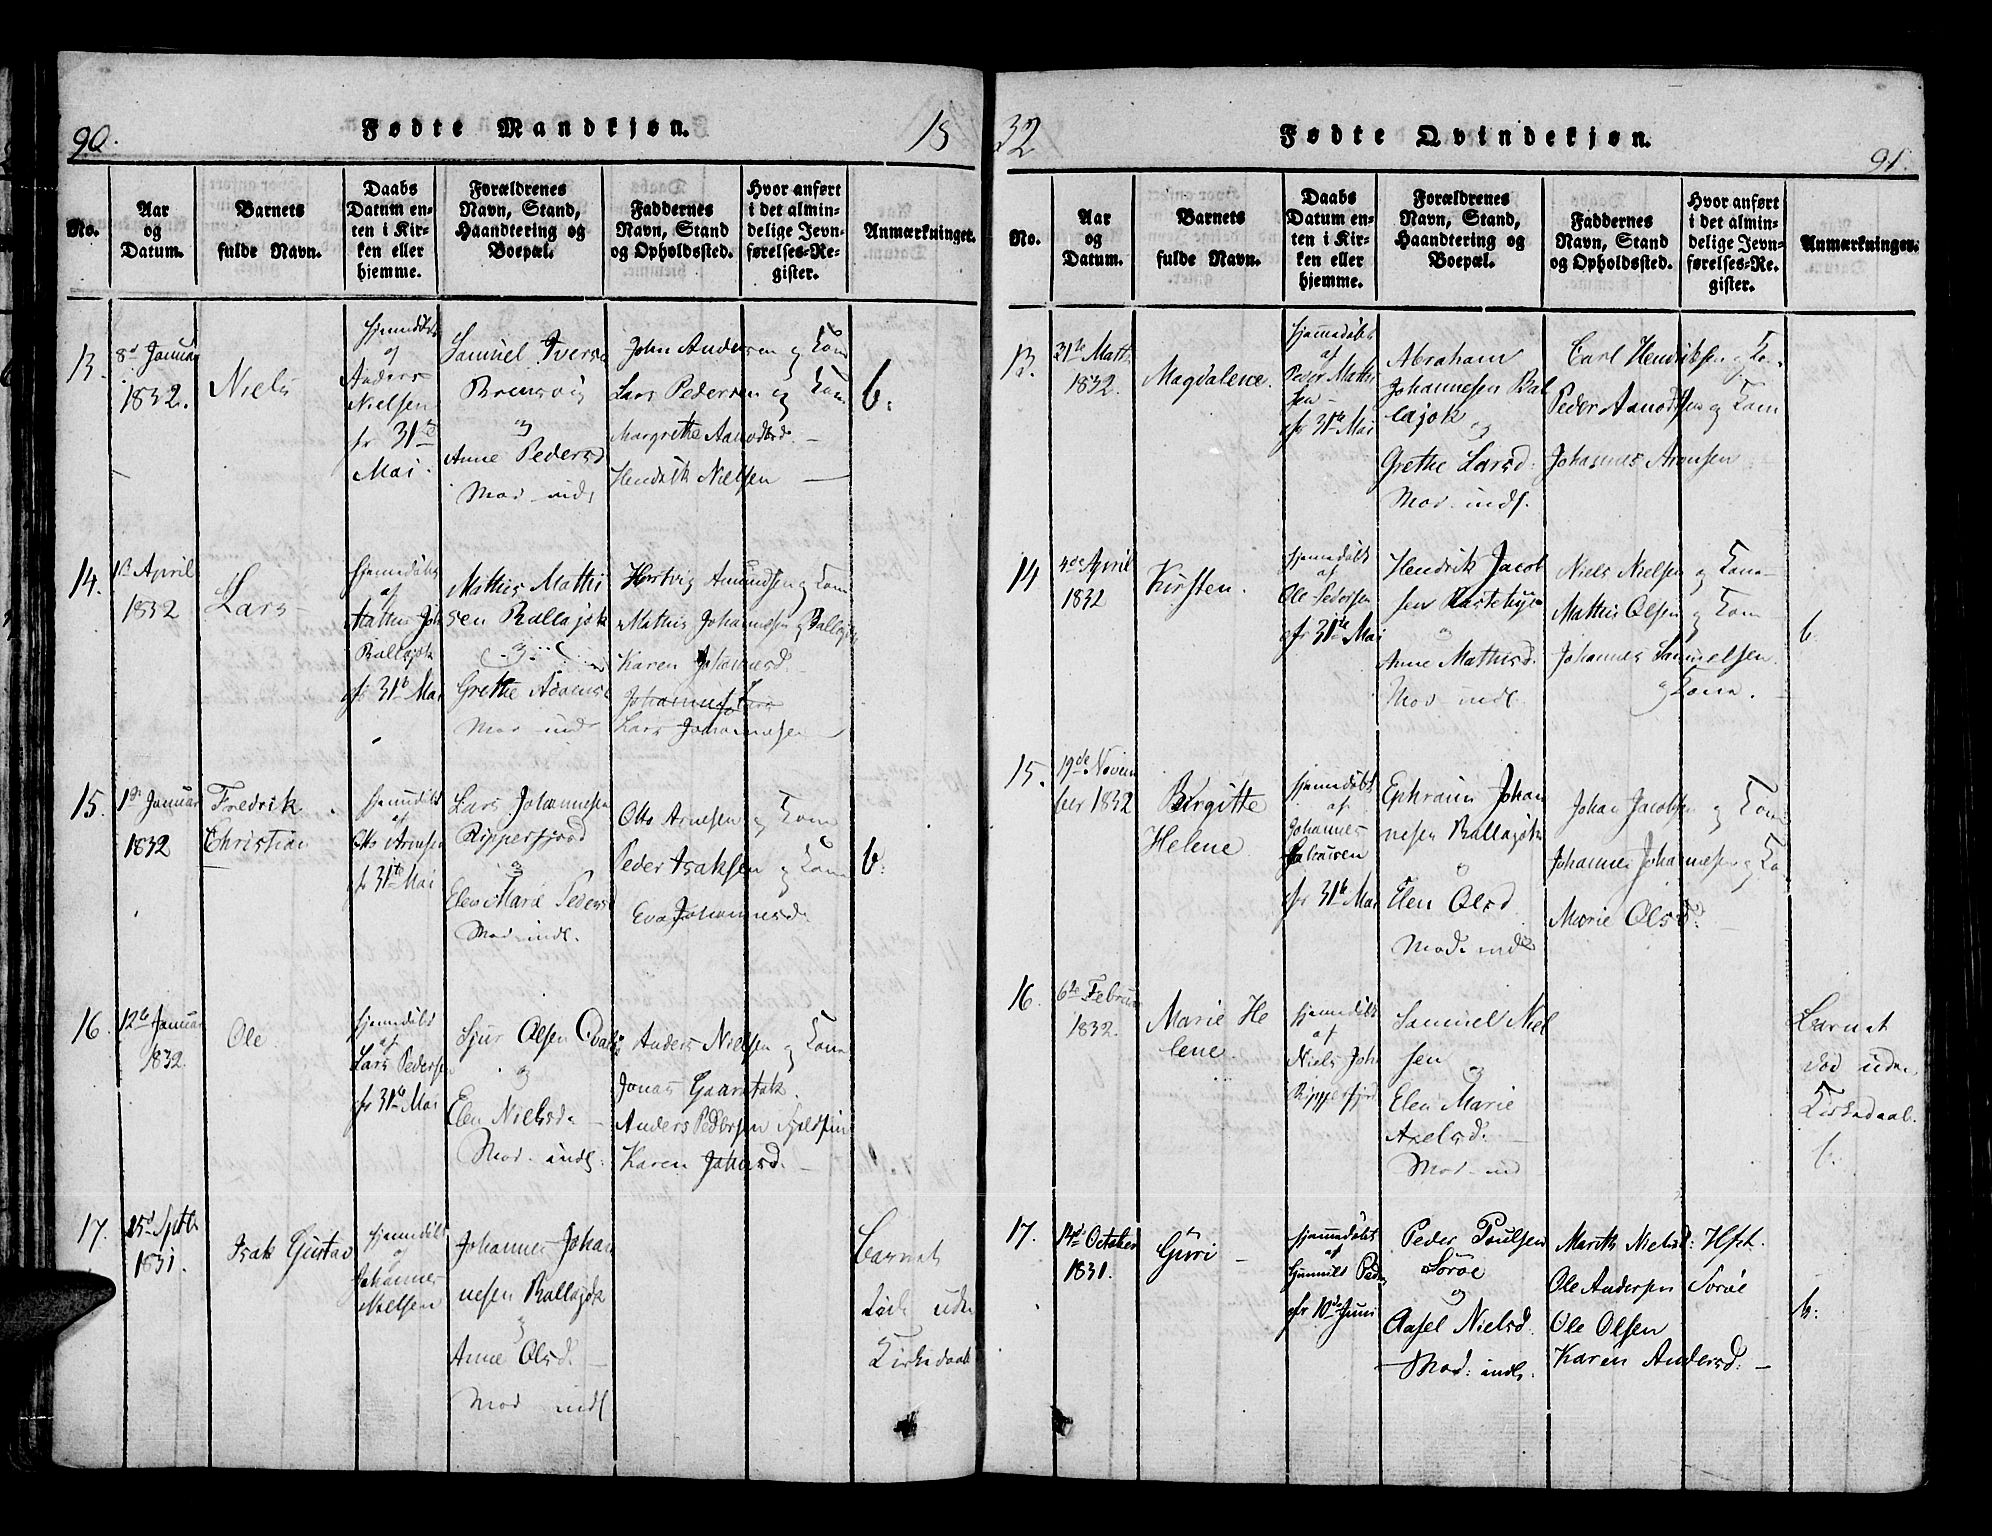 90.
Fødte Mandkjøn.
18
No.
Aar
og
Datum.
Barnets
fulde Navn.
Daabs
Datum en-
ten i Kir-
ken eller
hjemme.
Forældrenes
Navn, Stand,
Haandtering og
Boepæl.
Faddernes
Navn, Stand
og Opholdssted.
Hvor anført
i det almin-
delige Jevn-
førelses-Re-
gister.
Anmærkninger.
13.
8d Januar
1832.
Niels
hjemmedøbt
af
Anders
Nielsen
31te
Mai.
Samuel Ivers
og
Anne Pedersd
Mod indp
John Andersen og Kone
Lars Pedersen og Kone
Margrethe Aanodsd. —
Hendrik Nielsen —
b.
14.
1ste April
1832
Lars
hjemmedøbt
af
Mathis Joh
Ballajok
31te Mai
Mathis Mathi
sen Ballajok
og
Grethe Adamsd
Mod ind
Hartvig Amundsen og Kone
Mathis Johannesen Ballajok
Karen Johannesd.
Lars Johannesen
15.
1ste Januar
1832
Fredrik
Christian
hjemmedøbt
af
Otto Arnesen
31te Mai
Lars Johannesen
Ripperfjord
og
Elen Marie Pedersd
Mod indl.
Otto Arnesen og Kone
Peder Isaksen og Kone
Eva Johannesd.
b.
16.
12te Januar
1832.
Ole
hjemmedøbt
af
Lars Pedersen
31te Mai
Sjur Olsen
og
Elen Nielsd. —
Mod. indl.
Anders Nielsen og Kone
Jonas
Anders Pedersen
Karen Johnsd. —
17.
25d Septb.
1831.
Isak Gustav
hjemmedøbt
af
Johannes
Nielsen
Johannes Johan
nesen Ballajok
og
Anne Olsd. —
Mod indl
Barnet
døde uden
Kirkedaab
32
Fødte Qvindekjøn.
91.
No.
Aar
og
Datum.
Barnets
fulde Navn.
Daabs
Datum en-
ten i Kir-
ken eller
hjemme.
Forældrenes
Navn, Stand,
Haandtering og
Boepæl.
Faddernes
Navn, Stand
og Opholdssted.
Hvor anført
i det almin-
delige Jevn-
førelses-Re-
gister.
Anmærkninger.
13.
31te Marts
1832.
Magdalene.
hjemmedøbt
af
Peder Mathi
sen —
31te Mai
Abraham
Johannesen Bal
lajok
og
Grethe Larsd.
Mod indl.
Carl Hendriksen og Ko.
Peder Aanodsen og Kone
Johannes Aronsen
14
4de April
1832
Kirsten.
hjemmedøbt
af
Ole Pedersen
31te Mai
Hendrik Jacob
sen
og
Anne Mathisd.
Mod indl.
Niels Nielsen og Kone
Mathis Olsen og Kone
Johannes Samuelsen
og Kone.
b.
15.
19de Novem
ber 1832
Birgitte
Helene
hjemmedøbt
af
Johannes
31te Mai
Ephraim Johan
nesen Ballajok
og
Elen Olsd
Mod. ind
Johan Jacobsen og Kone
Johannes Johannesen og Ko
Marie Olsd.
16.
6te Februar
1832.
Marie He
lene.
hjemmedøbt
af
Niels Joh
Ripperfjord
Samuel Niel
sen
og
Elen Marie
Axelsd. —
Mod ind
Barnet
død uden
Kirkedaab.
b.
17.
14de October
1831.
Guri —
hjemmedøbt
af
Gunnild Ped
10de Juni
Peder Poulsen
Sorøe
og
Aasel Nielsd.
Mod: indl.
Marith Nielsd: Hst.
Ole Andersen Sorøe
Ole Olsen
Karen Andersd: —
b.